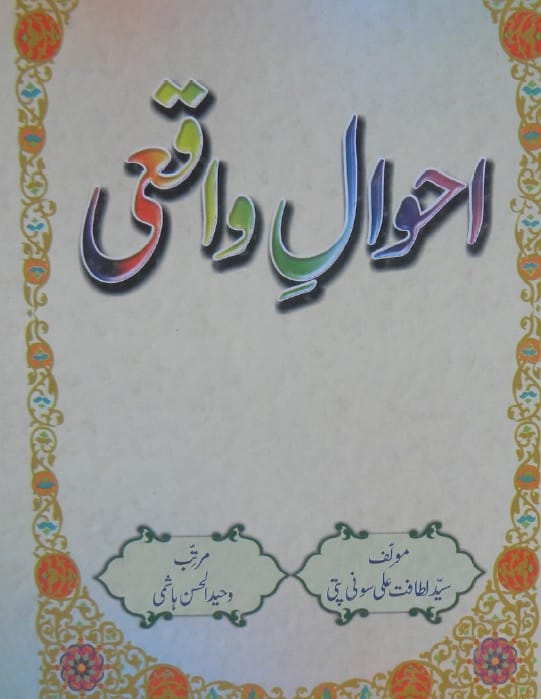 احوالِ واقعی
مولّف
سیّد لطافت علی سونی پتی
مرتّب
وحید الحسن ہاشمی